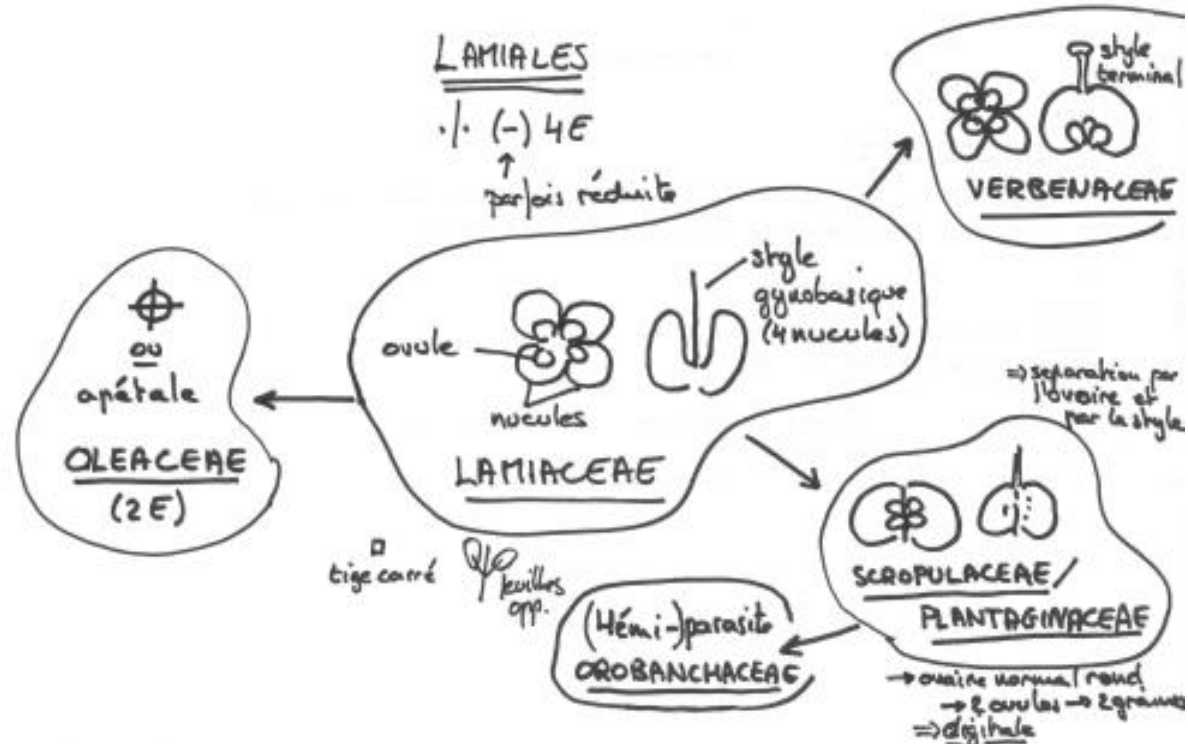 LAMIALES
·/· (-) 4E
↑
parfois réduite
style
terminal
VERBENACEAE
ou
apétale
OLEACEAE
(2E)
ovule
nucules
style
gynobasique
(4 nucules)
LAMIACEAE
tige carré
feuilles
opp.
=> separation par
l'ovaire et
par la style
SCROPULACEAE /
PLANTAGINACEAE
(Hémi-)parasite
OROBANCHACEAE
→ ovaire normal rond
→ 2 ovules → 2 graines
=> digitale